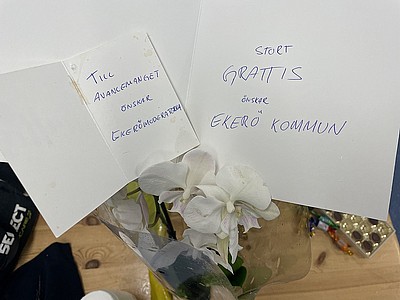 TILL
AVANCEMANGET
ÖNSKAR
EKERÖMODERATERNA
STORT
GRATTIS
ÖNSKAR
EKERÖ KOMMUN
SELECT